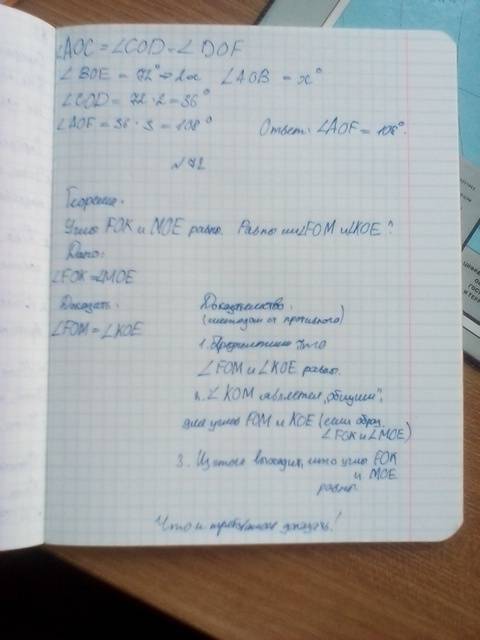 ∠AOC = ∠COD = ∠DOF
∠BOE = 72° = 2x ∠AOB = x°
∠COD = 72 · 2 = 36°
∠AOF = 36 · 3 = 108° Ответ: ∠AOF = 108°.
N 72
Теорема.
Углы FOK и MOE равны. Равны ли ∠FOM и ∠KOE?
Дано:
∠FOK = ∠MOE
Доказать:
∠FOM = ∠KOE
Доказательство.
(методом от противного)
1. Предположим что
∠FOM и ∠KOE равны.
2. ∠KOM является „общим“,
для углов FOM и KOE (
∠FOK и ∠MOE)
3. Из этого выходит, что углы FOK
и MOE
равны
Что и требовалось доказать!